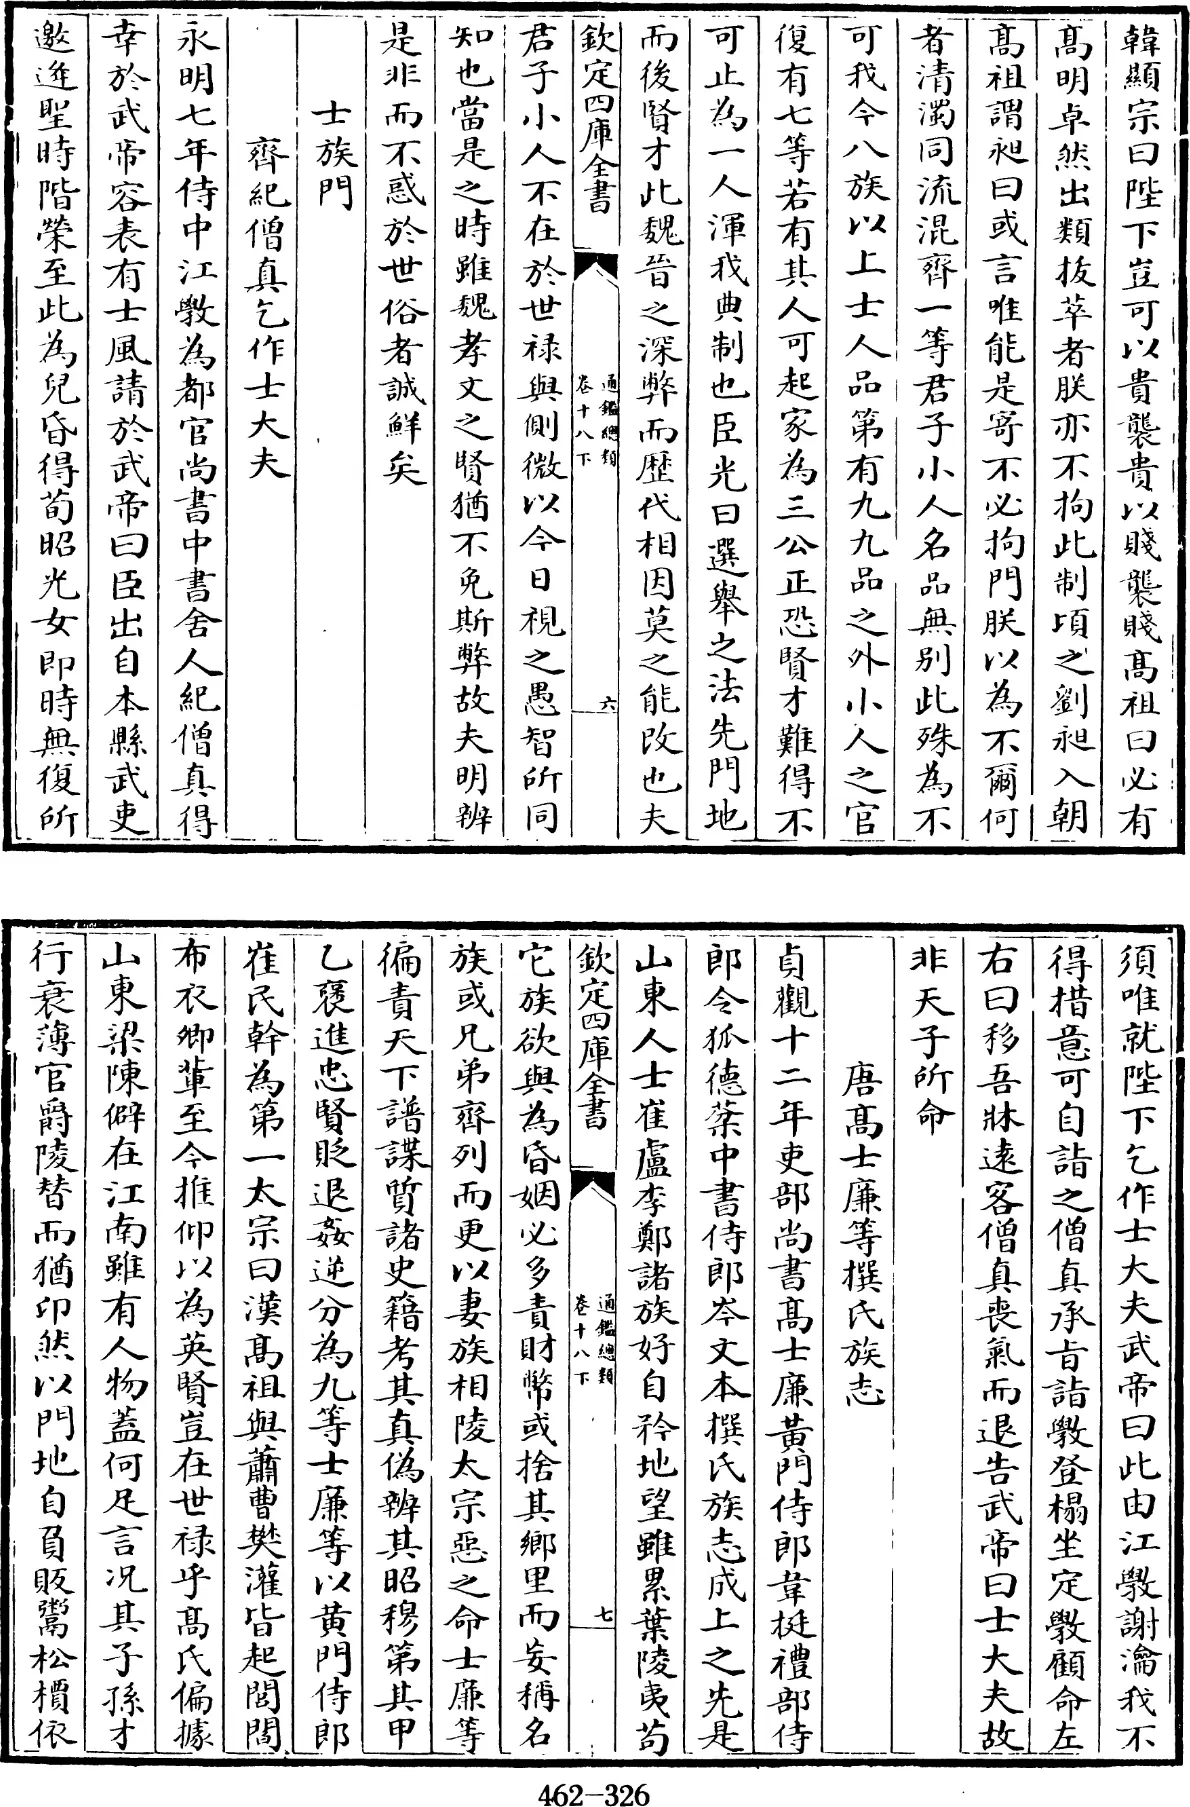 韓顯宗曰陛下豈可以貴襲貴以賤襲賤髙祖曰必有
髙明卓然出類拔萃者朕亦不拘此制頃之劉昶入朝
髙祖謂昶曰或言唯能是寄不必拘門朕以為不爾何
者清濁同流混齊一等君子小人名品無别此殊為不
可我今八族以上士人品第有九九品之外小人之官
復有七等若有其人可起家為三公正恐賢才難得不
可止為一人渾我典制也臣光曰選舉之法先門地
而後賢才此魏晉之深弊而歷代相因莫之能改也夫
欽定四庫全書
通鑑總類
卷十八下
六
君子小人不在於世禄與側微以今日視之愚智所同
知也當是之時雖魏孝文之賢猶不免斯弊故夫明辨
是非而不惑於世俗者誠鮮矣
士族門
齊紀僧真乞作士大夫
永明七年侍中江斆為都官尚書中書舍人紀僧真得
幸於武帝容表有士風請於武帝曰臣出自本縣武吏
邀逢聖時階榮至此為兒昏得荀昭光女即時無復所
須唯就陛下乞作士大夫武帝曰此由江斆謝瀹我不
得措意可自詣之僧真承旨詣斆登榻坐定斆顧命左
右曰移吾牀遠客僧真喪氣而退告武帝曰士大夫故
非天子所命
唐髙士廉等撰氏族志
貞觀十二年吏部尚書髙士廉黄門侍郎韋挺禮部侍
郎令狐德棻中書侍郎岑文本撰氏族志成上之先是
山東人士崔盧李鄭諸族好自矜地望雖累葉陵夷苟
欽定四庫全書
通鑑總類
卷十八下
七
它族欲與為昏姻必多責財幣或捨其鄉里而妄稱名
族或兄弟齊列而更以妻族相陵太宗惡之命士廉等
徧責天下譜諜質諸史籍考其真偽辨其昭穆第其甲
乙褒進忠賢貶退姦逆分為九等士廉等以黄門侍郎
崔民幹為第一太宗曰漢髙祖與蕭曹樊灌皆起閭閻
布衣卿輩至今推仰以為英賢豈在世禄乎髙氏偏據
山東梁陳僻在江南雖有人物蓋何足言况其子孫才
行衰薄官爵陵替而猶卬然以門地自負販鬻松檟依
462-326